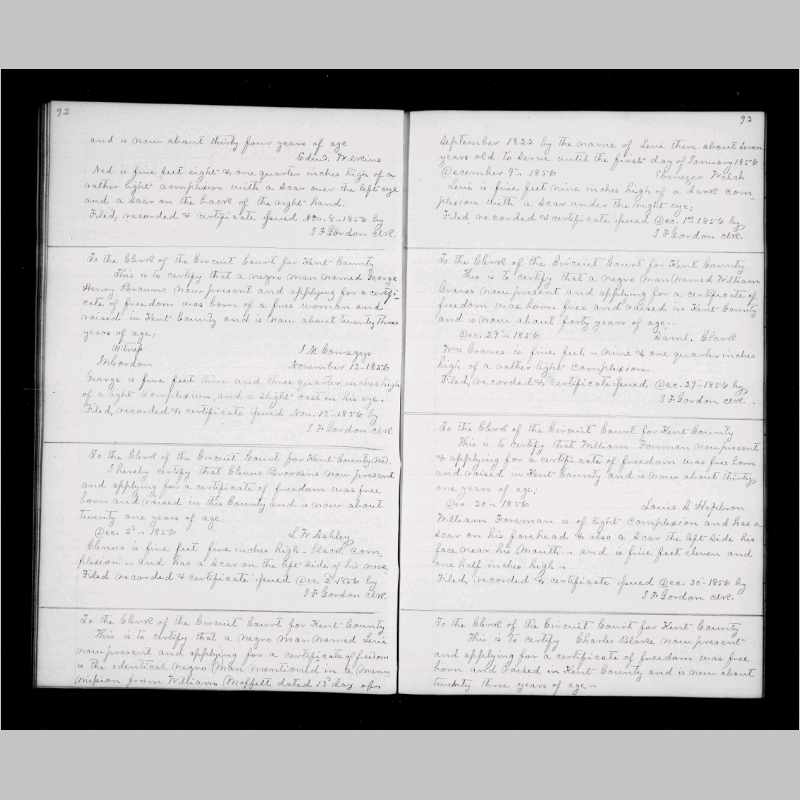 92
and is now about thirty four years of age
Edwd. Wilkins
Ned is five feet eight & one quarter inches high of a
rather light complexion with a scar over the left eye
and a scar on the back of the right hand.
Filed, recorded & certificate issued Nov. 8- 1856 by
J F Gordon clk.
To the Clerk of the Circuit Court for Kent County
This is to certify that a negro man named George
Henry Browne now present and applying for a certifi-
cate of freedom was born of a free woman and
raised in Kent County and is now about twenty three
years of age;
November 12- 1856
George is five feet nine and three quarter inches high
of a light complexion, and a slight cast in his eye.
Filed, recorded & certificate issued Nov. 12- 1856 by
J F Gordon clk
To the Clerk of the Circuit Court for Kent County Md.
I hereby certify that now present
and applying for a certificate of freedom was free
born and raised in this County and is now about
twenty one years of age
Dec. 2d- 1856
Ashley
is five feet five inches high- black com
plexion- and has a scar on the left side of his nose
Filed recorded & certificate issued Dec 2d 1856 by
J F Gordon clk.
To the Clerk of the Circuit Court for Kent County
This is to certify that a negro man named Levi
now present and applying for a certificate of freedom
is the identical negro man mentioned in a manu
mission from William Moffett dated day of
93
September 1822 by the name of Levi then about seven
years old to serve until the first day of January 1856
December 9th- 1856 Ebenezer Welsh
Levi is five feet nine inches high of a dark com
plexion with a scar under the right eye;
Filed, recorded & certificate issued Dec. 1856 by
J F Gordon clk.
To the Clerk of the Circuit Court for Kent County
This is to certify that a negro man named William
Graves now present and applying for a certificate of
freedom was born free and raised in Kent County
and is now about forty years of age..
Dec. 29th- 1856 Saml. Clark
Wm Graves is five feet nine & one quarter inches
high of a rather light complexion
Filed, recorded & certificate issued Dec. 29- 1856 by
J F Gordon clk.
To the Clerk of the Circuit Court for Kent County
This is to certify that William Forman now present
& applying for a certificate of freedom was free born
and raised in Kent County and is now about thirty
one years of age;
Dec 30th 1856 Hepbron
William Forman is of light complexion and has a
scar on his forehead & also a scar the left side his
face near his mouth- and is five feet eleven and
one half inches high-
Filed, recorded & certificate issued Dec. 30- 1856 by
J F Gordon clk.
To the Clerk of the Circuit Court for Kent County
This is to certify Charles Blake now present
and applying for a certificate of freedom was free
born and raised in Kent County and is now about
twenty three years of age-